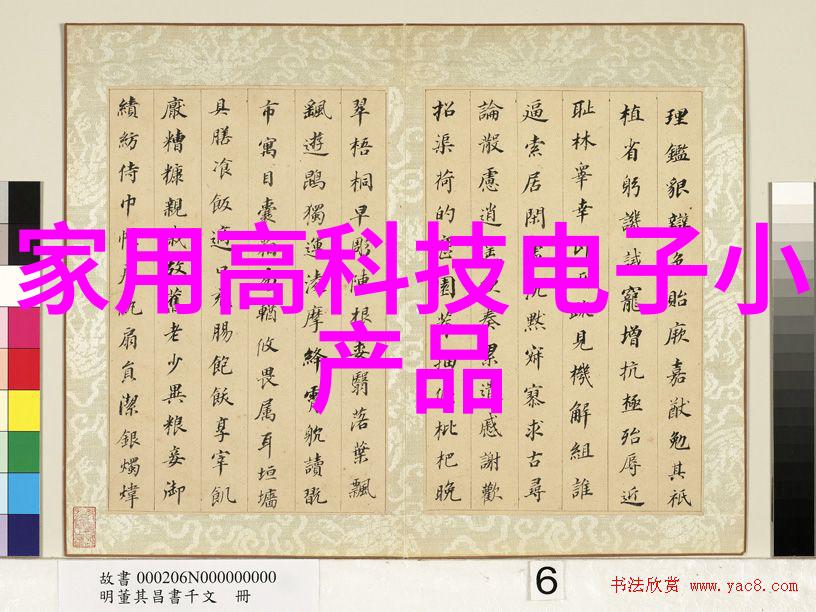 家用高科技电子小
产品
理鑑貌辯色貽厥嘉猷勉其祇
植省躬譏誡寵增抗極殆辱近
耻林皋幸即兩疏見機解組誰
逼索居閑處沉默寂寥求古尋
論散慮逍遙欣奏累遣慼謝歡
招渠荷的歷園莽抽條枇杷晚
翠梧桐早彫陳根委翳落葉飄
颻遊鵾獨運凌摩絳霄躭讀翫
市寓目囊箱易輶攸畏属耳垣墻
具膳飡飯適口充腸飽飫享宰飢
厭糟糠親戚故舊老少異粮妾御
績紡侍巾帷房紈扇員潔銀燭煒
故書 000206N000000000
明董其昌書千文 冊
6
书法欣赏 www.yac8.com